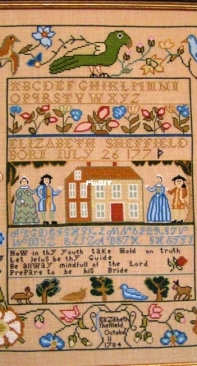 ABCDEFGHIKLMNI
OPQRSTVWXYZ
ELIZABETH SHEFFIELD
BORN JULY 26 177
Now in thy youth take Hold on truth
Let Jesus be thy Guide
Be allway mindfull of the Lord
Prepare to be his Bride
Elizabeth
Sheffield
October
11
1784